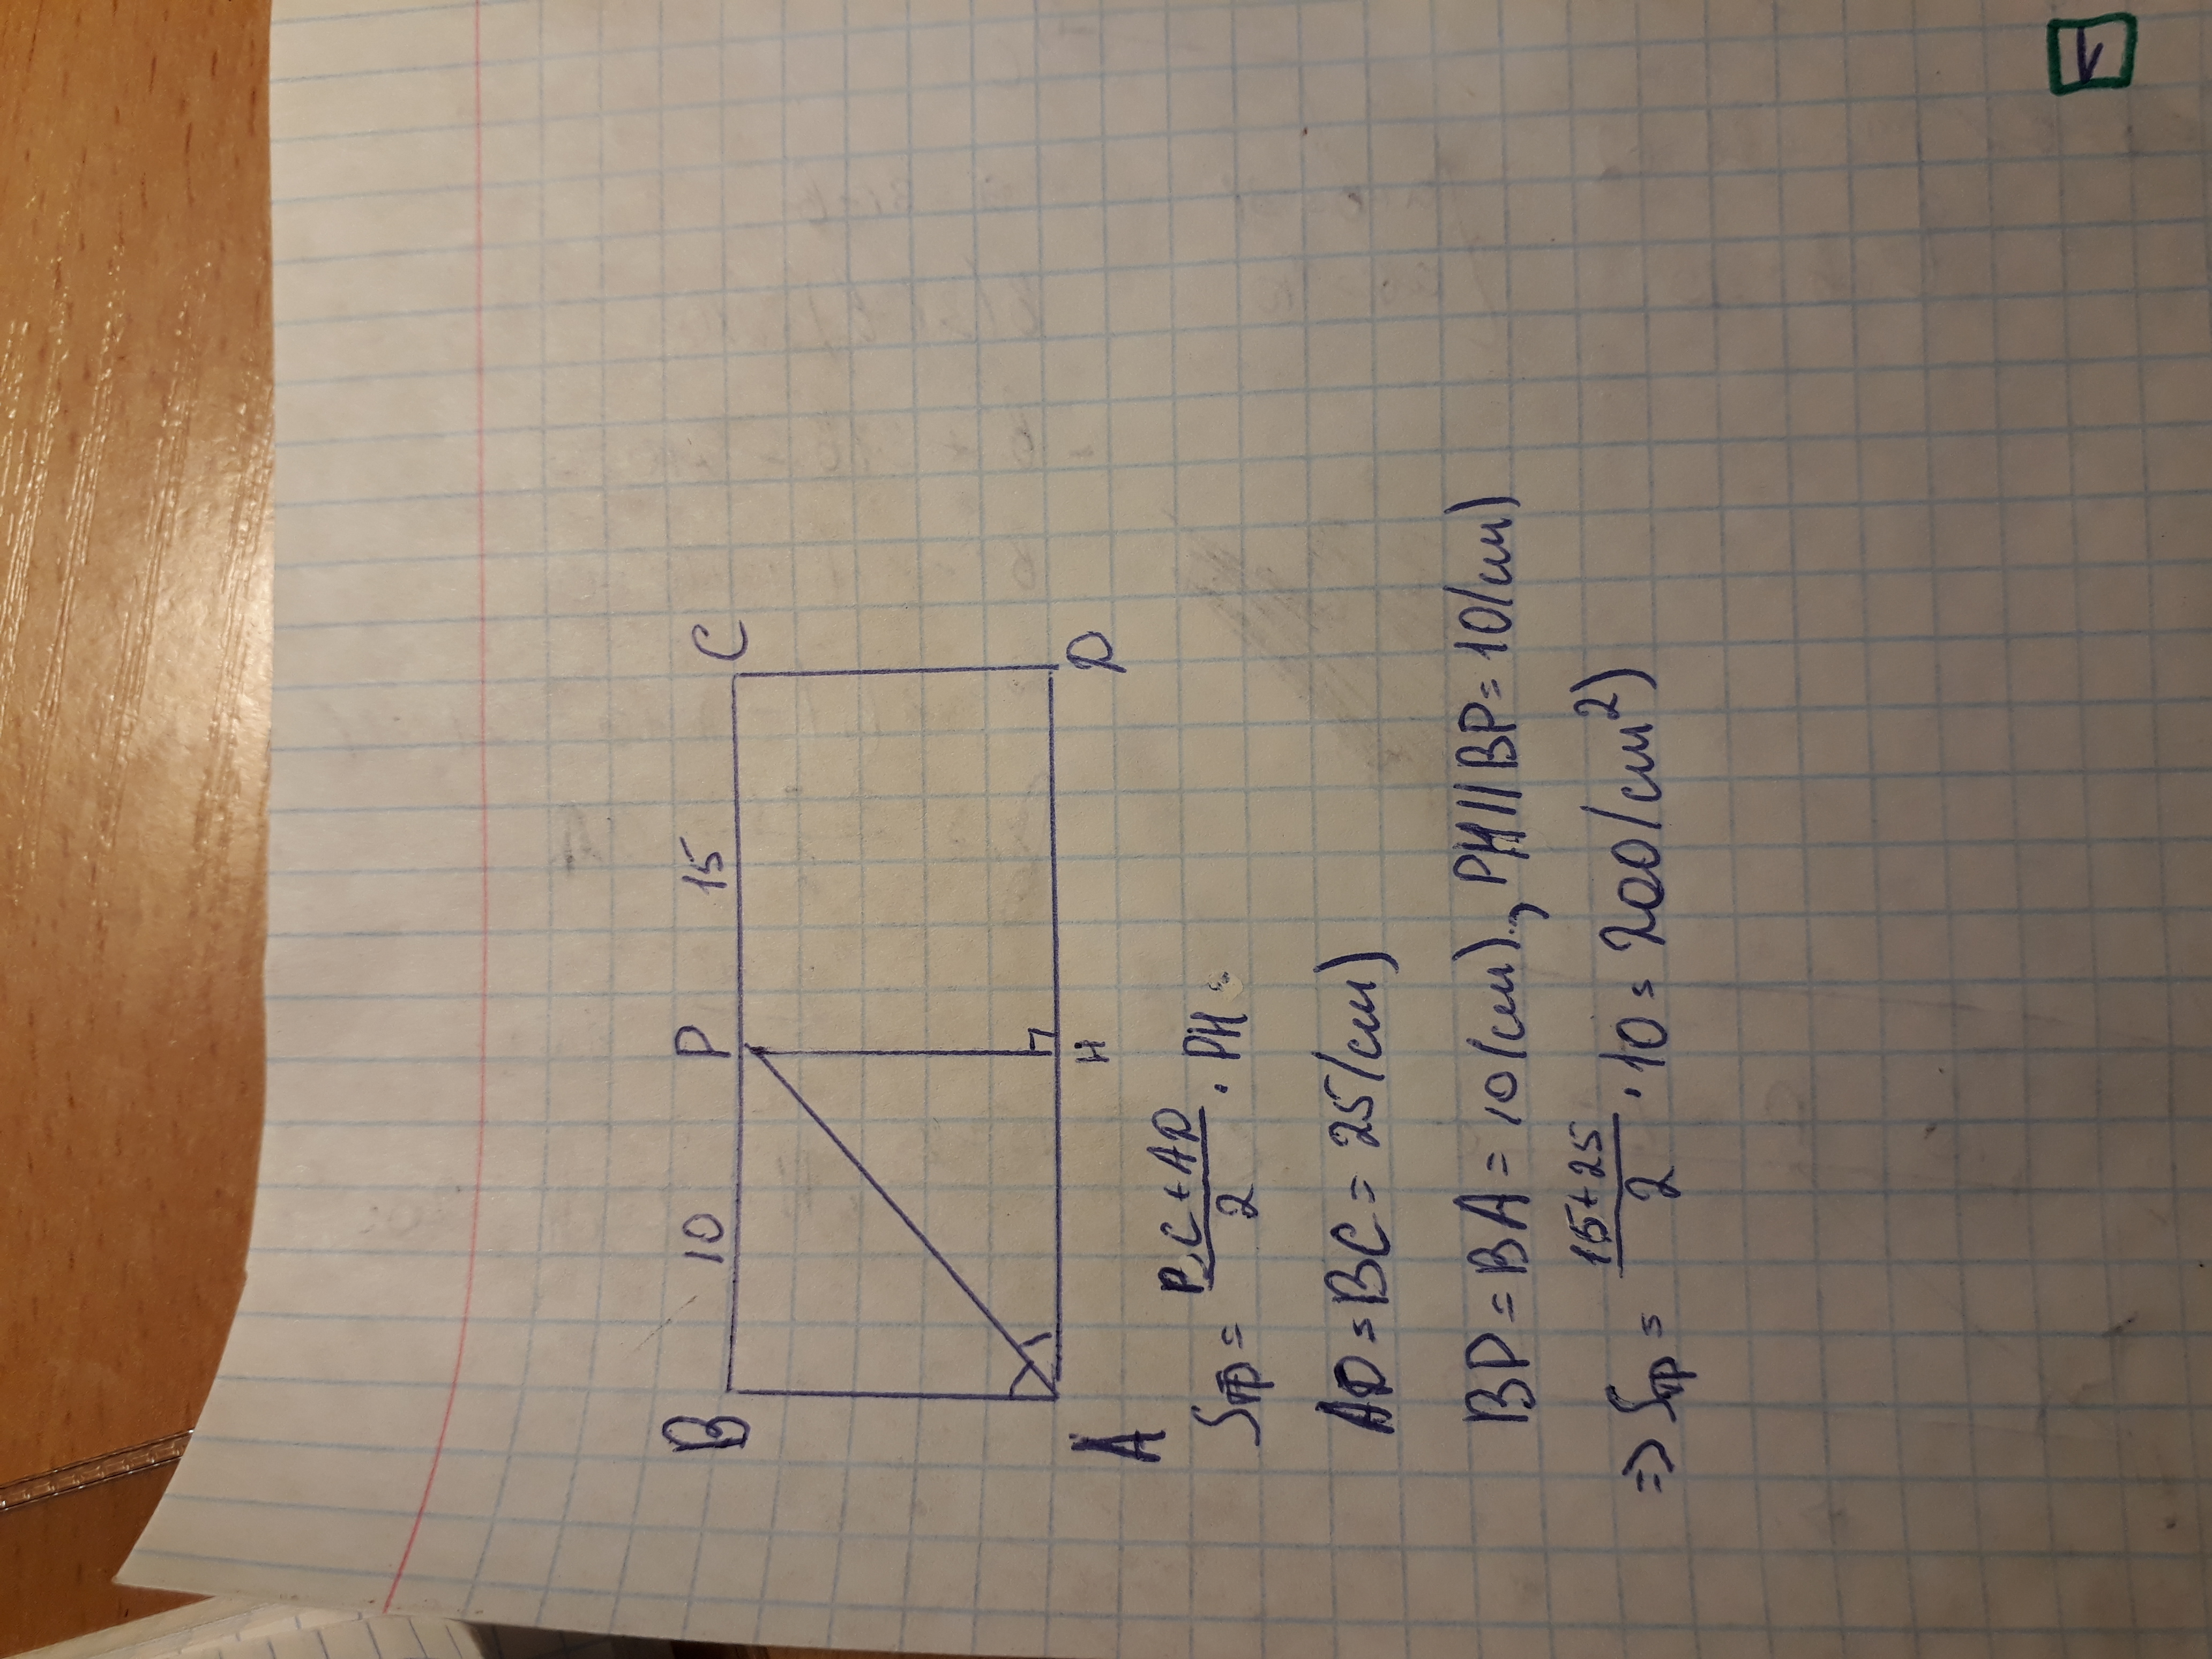 B 10 P 15 C
A H D
Sтр = (PC + AD)/2 · PH
AD = BC = 25(см)
BP = BA = 10(см), PH || BP = 10(см)
=> Sтр = (15+25)/2 · 10 = 200(см²)